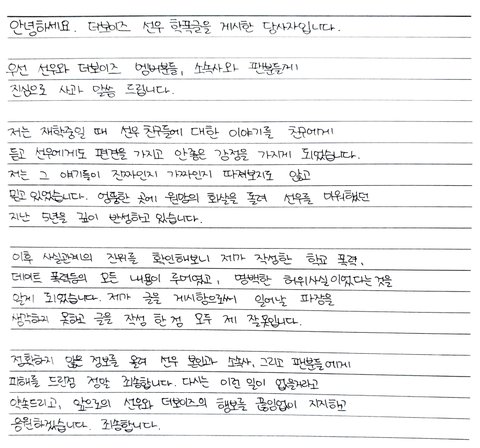 안녕하세요. 더보이즈 선우 학폭글을 게시한 당사자입니다.
우선 선우와 더보이즈 멤버분들, 소속사와 팬분들께
진심으로 사과 말씀 드립니다.
저는 재학중일 때 선우 친구들에 대한 이야기를 친구에게
듣고 선우에게도 편견을 가지고 안좋은 감정을 가지게 되었습니다.
저는 그 얘기들이 진짜인지 가짜인지 따져보지도 않고
믿고 있었습니다. 엉뚱한 곳에 원망의 화살을 돌려 선우를 미워했던
지난 5년을 깊이 반성하고 있습니다.
이후 사실관계의 진위를 확인해보니 제가 작성한 학교 폭력,
데이트 폭력등의 모든 내용이 루머였고, 명백한 허위사실이었다는것을
알게 되었습니다. 제가 글을 게시함으로써 일어날 파장을
생각하지 못하고 글을 작성 한 점 모두 제 잘못입니다.
정확하지 않은 정보를 올려 선우 본인과 소속사, 그리고 팬분들에게
피해를 드린점 정말 죄송합니다. 다시는 이런 일이 없을거라고
약속드리고, 앞으로의 선우와 더보이즈의 행보를 끊임없이 지지하고
응원하겠습니다. 죄송합니다.